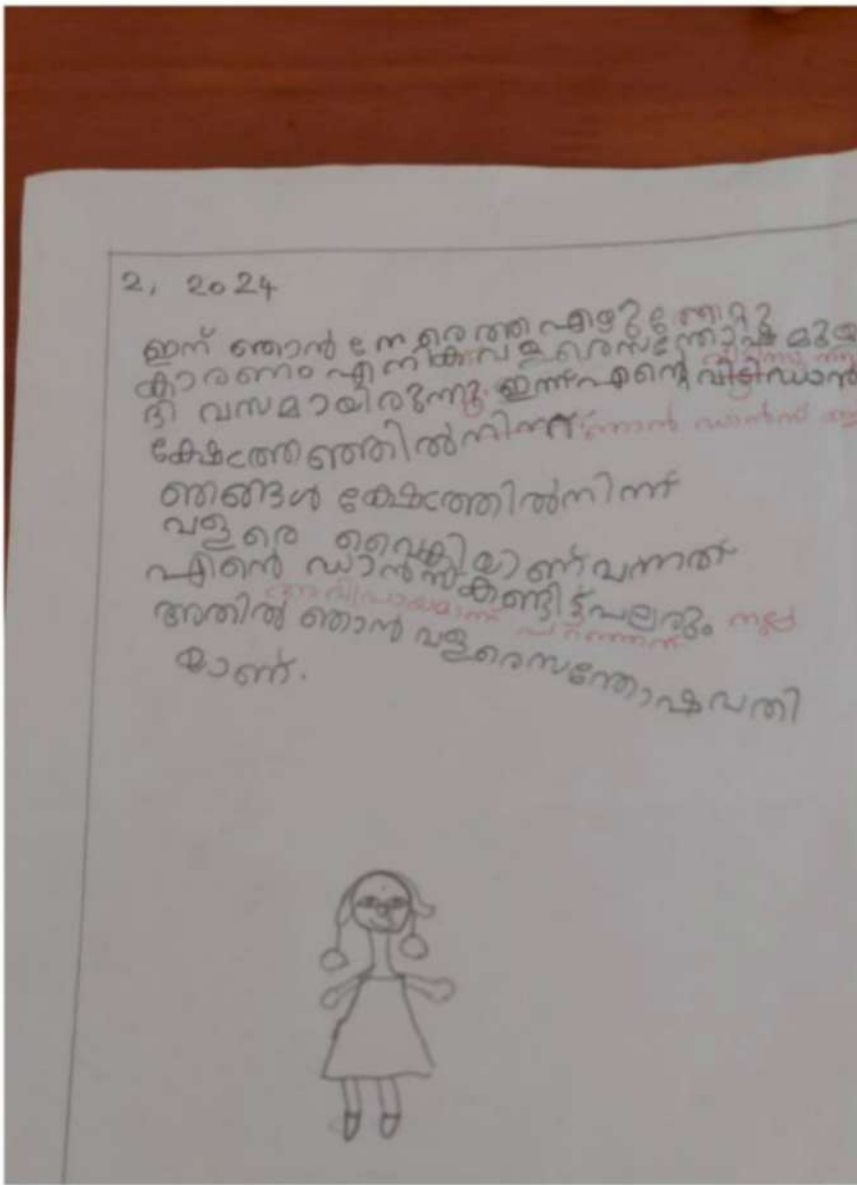 2, 2024
ഇന്ന് ഞാൻ നേരത്തെ എഴുന്നേറ്റു
കാരണം എനിക്ക് വളരെ സന്തോഷമുള്ള
ദിവസമായിരുന്നു. ഇന്ന് എന്റെ ഡാൻ
ക്ഷേത്രത്തിൽ നിന്ന് ഞാൻ ഡാൻസ്
ഞങ്ങൾ ക്ഷേത്രത്തിൽനിന്ന്
വളരെ വൈകിയാണ് വന്നത്
എന്റെ ഡാൻസ് കണ്ടിട്ട് പലരും നല്ല
അഭിപ്രായമാണ് പറഞ്ഞത്
അതിൽ ഞാൻ വളരെസന്തോഷവതി
യാണ്.